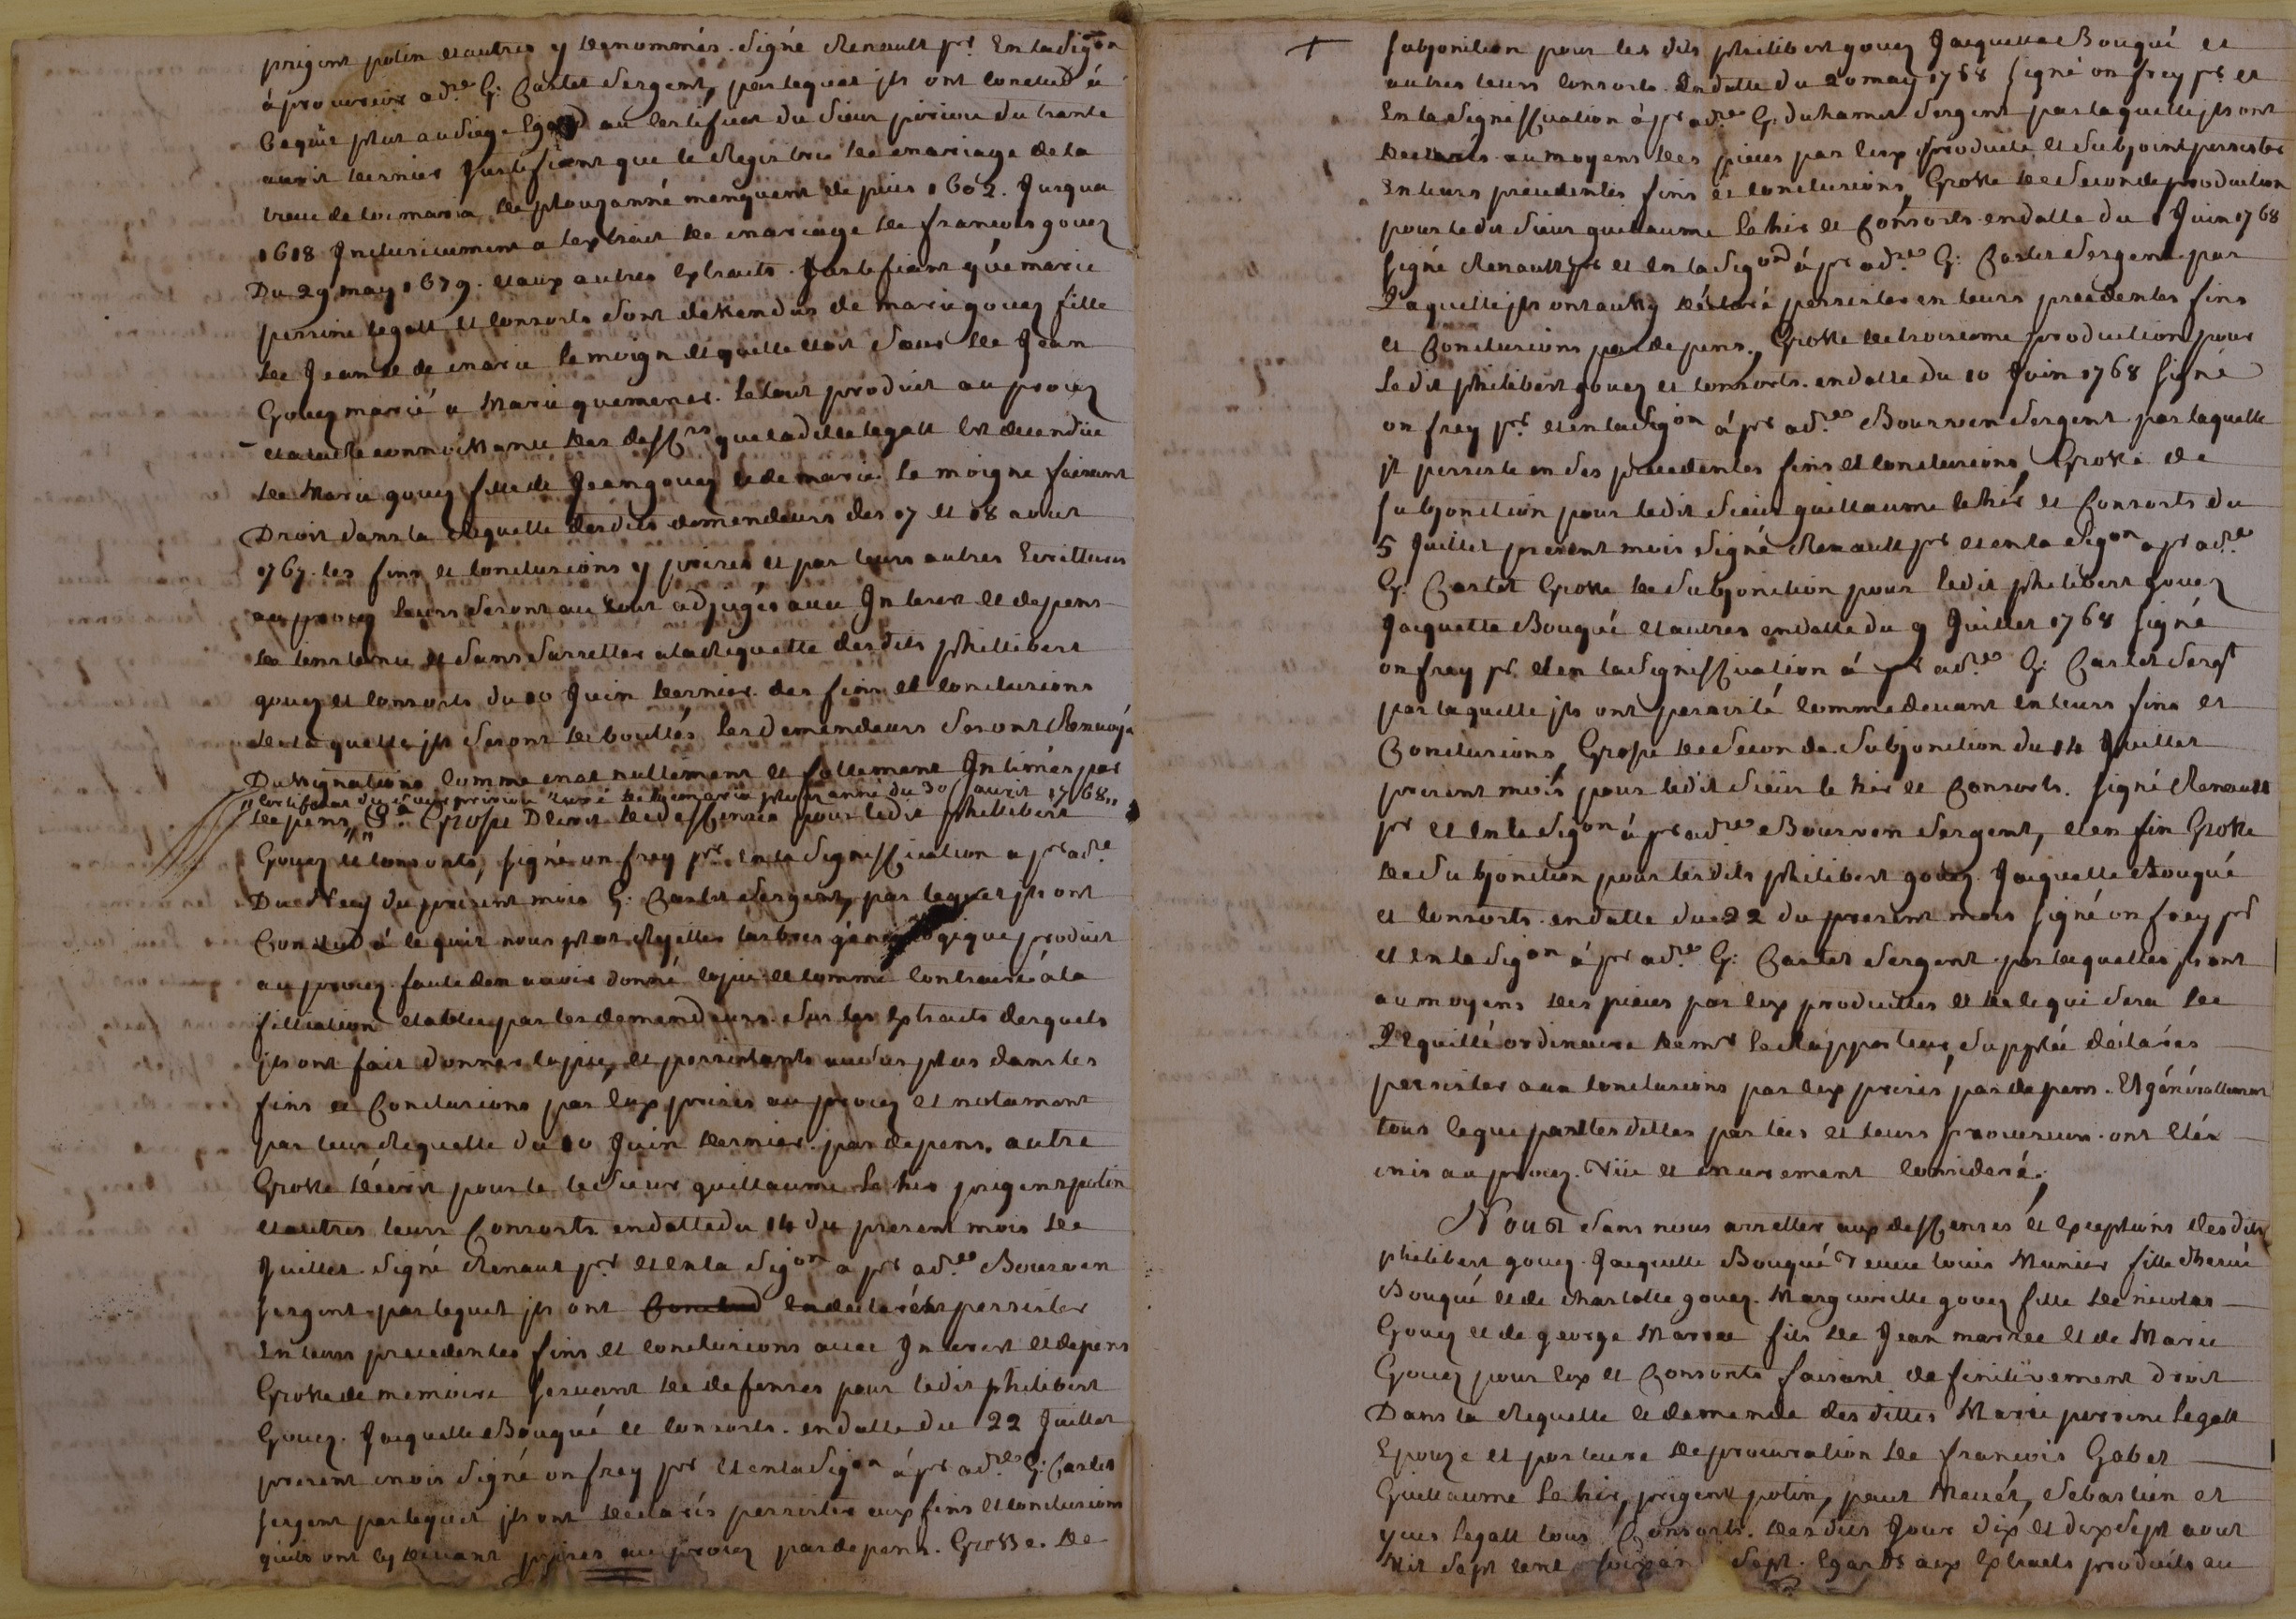 prigent potin et autres y denommés. signé Renault pr. En la sigon
à procureur adre G: Carlet sergent, par lequel jls ont conclud à
ce qu'il plut au siège Egard au certificat du sieur prieur du trante
avril dernier Justifiant que le Registres de mariage de la
treve de loc maria de plouzanné manquent depuis 1602. Jusqua
1618 Inclusivement a lextrait de mariage de francois gouez
Du 29 may 1679. et aux autres Extraits. Justifiant que marie
perrine legall et consorts sont dessendus de marie gouez fille
de Jean et de marie le moign et quelle etoit sœur de Jean
Gouez marié a Marie quemener. le tout produit au procez
et a la reconnoissance des deffrs que laditte legall Est decendüe
de Marie gouez fille de Jean gouez et de marie le moigne faisant
Droit dans la Requette desdits demendeurs des 17 et 18 aout
1767. les fins et conclusions y prises et par leurs autres Ecrittures
au procez leurs seront au tout adjugés avec Interest et depens
de linstance, et sans sarretter a la Requette desdits phillibert
gouez et consorts du 10 Juin dernier. des fins et conclusions
de laquelle jls seront deboutés les demendeurs seront Renvoyé
Dassignations comme mal nullement et follement Intimés par
"certificat du sieur prieur curé de locmaria plouzanné du 30 avril 1768"
depens, Grosse Decrit de deffenses pour ledit phillibert
Gouez et consorts, signé onfrey pr. en la signiffication a pr adre
Du du présent mois G: Carlet sergent, par lequel jls ont
Conclud à ce quil nous plut Rejetter larbres génealogique produit
au procez faute den avoir donné copie et comme contraire à la
filliation etablie par les demendeurs. sur les Extraits desquels
jls ont fait donner copie, et persistants au surplus dans les
fins et Conclusions par Eux prises au procez et notament
par leur Requette du 10 Juin dernier. par depens. autre
Grosse décrit pour le le sieur guillaume le hir prigent potin
et autres leurs Consorts en datte du 14 du present mois de
Juillet signé Renaut pr. et en la sigon a pr adre Bourven
sergent par lequel jls ont déclarés persister
En leurs precedentes fins et conclusions avec Interest et depens
Grosse de memoire servant de defenses pour ledit philibert
Gouez. Jacquette Bouqué et consorts. en datte du 22 Juillet
present mois signé onfrey pr et en la sigon à pr adre G: Carlet
sergent par lequel jls ont declarés persister aux fins et conclusions
quils ont cy devant prises au procez par depens. Grosse. de
+ subjonction pour les dits philibert gouez Jacquette Bouqué et
autres leurs consorts. en datte du 20 may 1768 signé onfrey pr et
En la signiffication à pr adre G: duhamel sergent par laquelle jls ont
declarés au moyens des pieces par Eux produitte et subjoint persister
En leurs precedentes fins et conclusions, Grosse de seconde production
pour le dit sieur guillaume le hir et Consorts en datte du 1 Juin 1768
signé Renault pr et en la sigon à pr adre G: Carlet sergent par
Laquelle jls ont aussy déclaré persister en leurs precedentes fins
et Conclusions par depens., Grosse de troisieme production pour
Le dit philibert gouez et consorts. en datte du 10 Juin 1768 signé
onfrey pr. et en la sigon à pr adre Bourven sergent par laquelle
jl persiste en ses precedentes fins et conclusions, Grosse de
subjonction pour ledit sieur guillaume le hir et Consorts du
5 Juillet present mois signé Renault pr et en la sigon a pr adre
G: Carlet Grosse de subjonction pour ledit philibert gouez
Jacquette Bouqué et autres en datte du 9 Juillet 1768 signé
onfrey pr. et en la signiffication à pr adre G: Carlet sergt
par laquelle jls ont persisté comme devant en leurs fins et
Conclusions, Grosse de seconde subjonction du 14 Juillet
present mois, pour ledit sieur le hir et Consorts. signé Renault
pr et en la sigon à pr adre Bourven sergent, et en fin Grosse
de subjonction pour lesdits philibert gouez Jacquette Bouqué
et consorts. en datte du 22 du present mois signé onfrey pr
et en la sigon à pr adre G: Carlet sergent par laquelle jls ont
au moyens des pieces par Eux produittes et de ce qui sera de
L'Equitté ordinaire de mr le Rapporteur, suppleé déclarés
persister aux conclusions par Eux prises par depens. Et généralement
tous ceque parttesdittes parties et leurs procureurs ont Etés
mis au procez. vüe et murement considerés;
Nous sans nous arretter aux deffenses et Exceptions desdits
philibert gouez. Jacquette Bouqué veuve louis Munier fille Hervé
Bouqué et de charlotte gouez. Margueritte gouez fille de nicolas
Gouez et de george Marzee fils de Jean marzee et de Marie
Gouez pour Eux et Consorts faisant definitivement droit
Dans la Requette et demende desdittes Marie perrine legall
Epouze et porteuse de procuration de francois Gabet
Guillaume le hir, prigent potin, paul Mevél, Sebastien et
yves legall tous Consorts. desdits Jour dix et dix sept aout
Mil sept cent soixan sept. Egards aux Extraits produits au